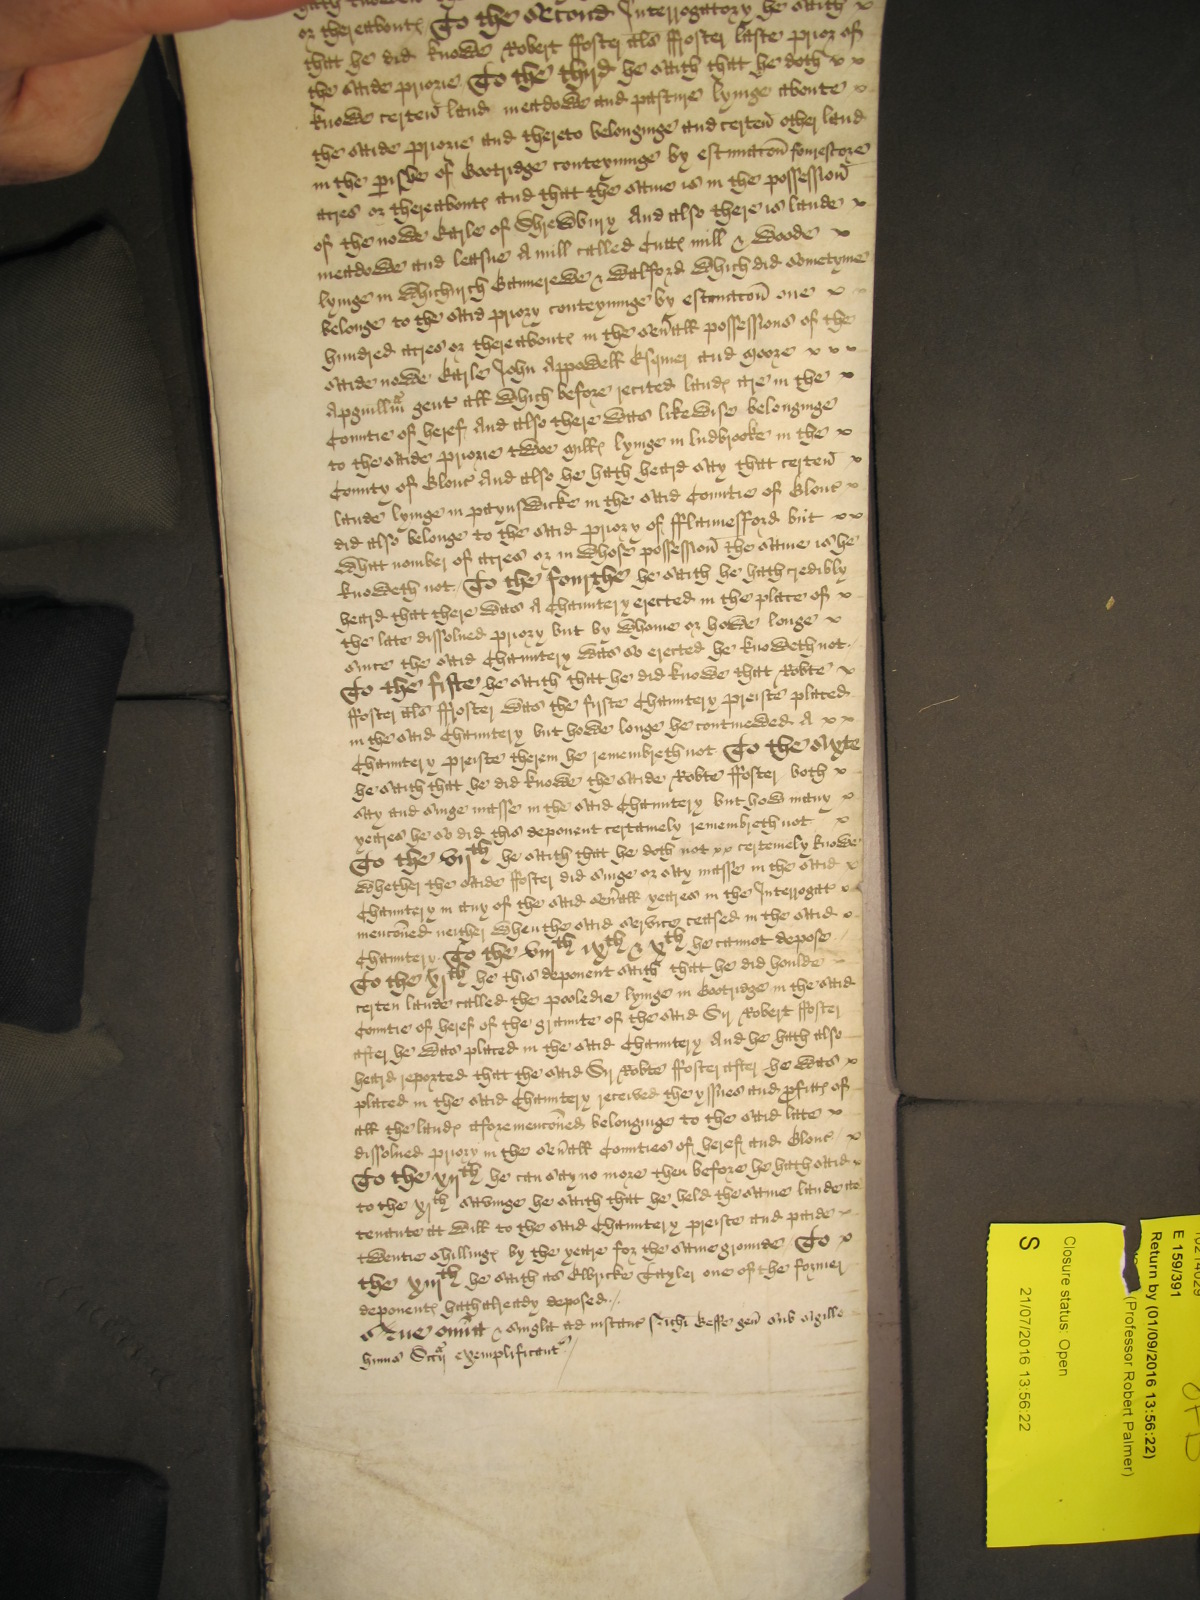 or thereaboutes To the second Interrogatory he saith x
that he did knowe Robert ffoster als fforster laste prior of
the saide priorie To the third he saith that he doth x x
knowe certen land meadowe and pasture lyinge aboute x
the saide priorie and thereto belonginge and certen other land
in the pishe of Gootridge conteyninge by estimacon fourescore
acres or thereaboutes and that the same is in the possession
of the nowe Earle of Shrewsbury And also there is lande x
meadowe and leasue A mill called Cutts mill & woode x
lyinge in Whichurch Gannerewe & Walford Which did sometyme
belonge to the said priory conteyninge by estimacon one x
hundred acres or thereaboutes in the seuall possessions of the
saide nowe Earle John Appowell Esquier and Moore x x x
Apguillim gent all Which before recited landes are in the x
Countie of heref And also there was likewise belonginge
to the saide priorie twoe mills lyinge in Ludbrooke in the x
County of Glouc And also he hath heard say that certen x
lande lyinge in paynswicke in the said Countie of Glouc x
did also belonge to the said priory of fflannesford but x x
What nomber of acres or in whose possession the same is he
knoweth not. To the fourthe he saith he hath credibly
heard that there was A Chauntery erected in the place of x
the late dissolued priory but by whome or howe longe x
since the said Chauntery was so erected he knoweth not.
To the fifte he saith that he did knowe that Robte x
ffoster als fforster was the firste Chauntery preiste placed
in the said Chauntery but howe longe he contynewed A x x
Chauntery preiste therein he remembreth not To the sixte
he saith that he did knowe the saide Robte ffoster both x
say and singe masse in the said Chauntery but how many x
yeares he so did this deponent certainely remembreth not x
To the viith he saith that he doth not xx certenely knowe
Whether the saide ffoster did singe or say masse in the said x
Chauntery in any of the said seuall yeares in the Interrogat x
menconed neither When the said service ceased in the said x
Chauntery. To the viiith ixth & xth he cannot depose /
To the xith he this deponent saith that he did houlde
certen lande called the pooledie lyinge in Gootridge in the said
Countie of heref of the graunte of the said Sir Robert ffoster
after he was placed in the said Chauntery And he hath also
heard reported that the said Sir Robte ffoster after he was x
placed in the said Chauntery received the yssues and pfitts of
all the landes aforemenconed belonginge to the said late x
dissolued priory in the seuall Counties of heref and Glouc x
To the xiith he can say no more then before he hath said x
to the xith savinge he saith that he held the same lande as
tenante at will to the said Chauntery preiste and paide
twentie shillinges by the yeare for the same grounde / To x
the xiiith he saith as Elbricke Tayler one of the former
deponentes hath already deposed./.
Que omia & singla ad instanc Richi Keffe gen sub sigillo
huius Sccii exemplificant /
E 159/391
Return by (01/09/2016 13:56:22)
(Professor Robert Palmer)
Closure status: Open
S 21/07/2016 13:56:22